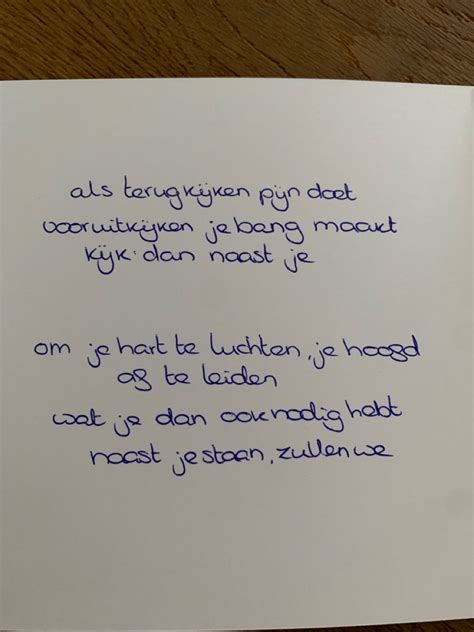 als terugkijken pijn doet
vooruitkijken je bang maakt
kijk dan naast je
om je hart te luchten, je hoofd
af te leiden
wat je dan ook nodig hebt
naast je staan, zullen we